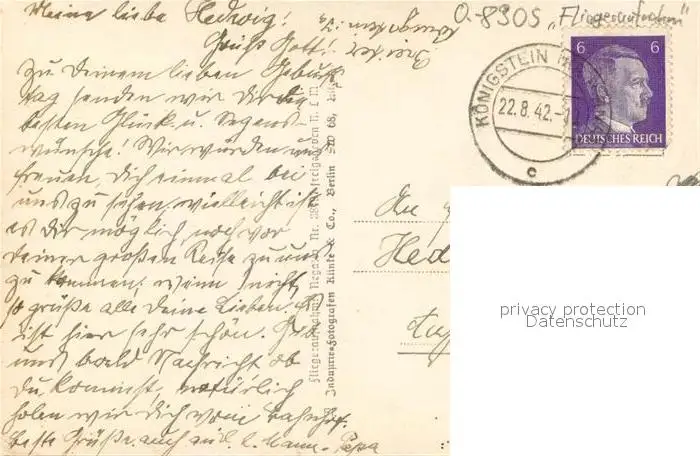 Meine liebe Hedwig!
Grüß Gott!
Zu Deinem lieben Geburts
tag senden wir Dir die
besten Glück u. Segens-
wünsche! Wir würden uns
freuen, Dich einmal bei
uns zu sehen, vielleicht ist
es dir möglich, noch vor
deiner großen Reise zu uns
zu kommen; wenn nicht,
so grüße alle deine Lieben. Es
ist hier sehr schön. Gib
uns bald Nachricht ob
Du kommst, natürlich
holen wir Dich vom Bahnhof.
beste Grüße auch an d. l. Mann. Papa
0-8305 "Fliegeraufnahmen"
KÖNIGSTEIN
22.8.42.
c
6 6
DEUTSCHES REICH
Fliegeraufnahme Negativ Nr. freigegeben R. L. M.
Industrie-Fotografen Klinke & Co., Berlin SW 68,
An
Hed
privacy protection
Datenschutz